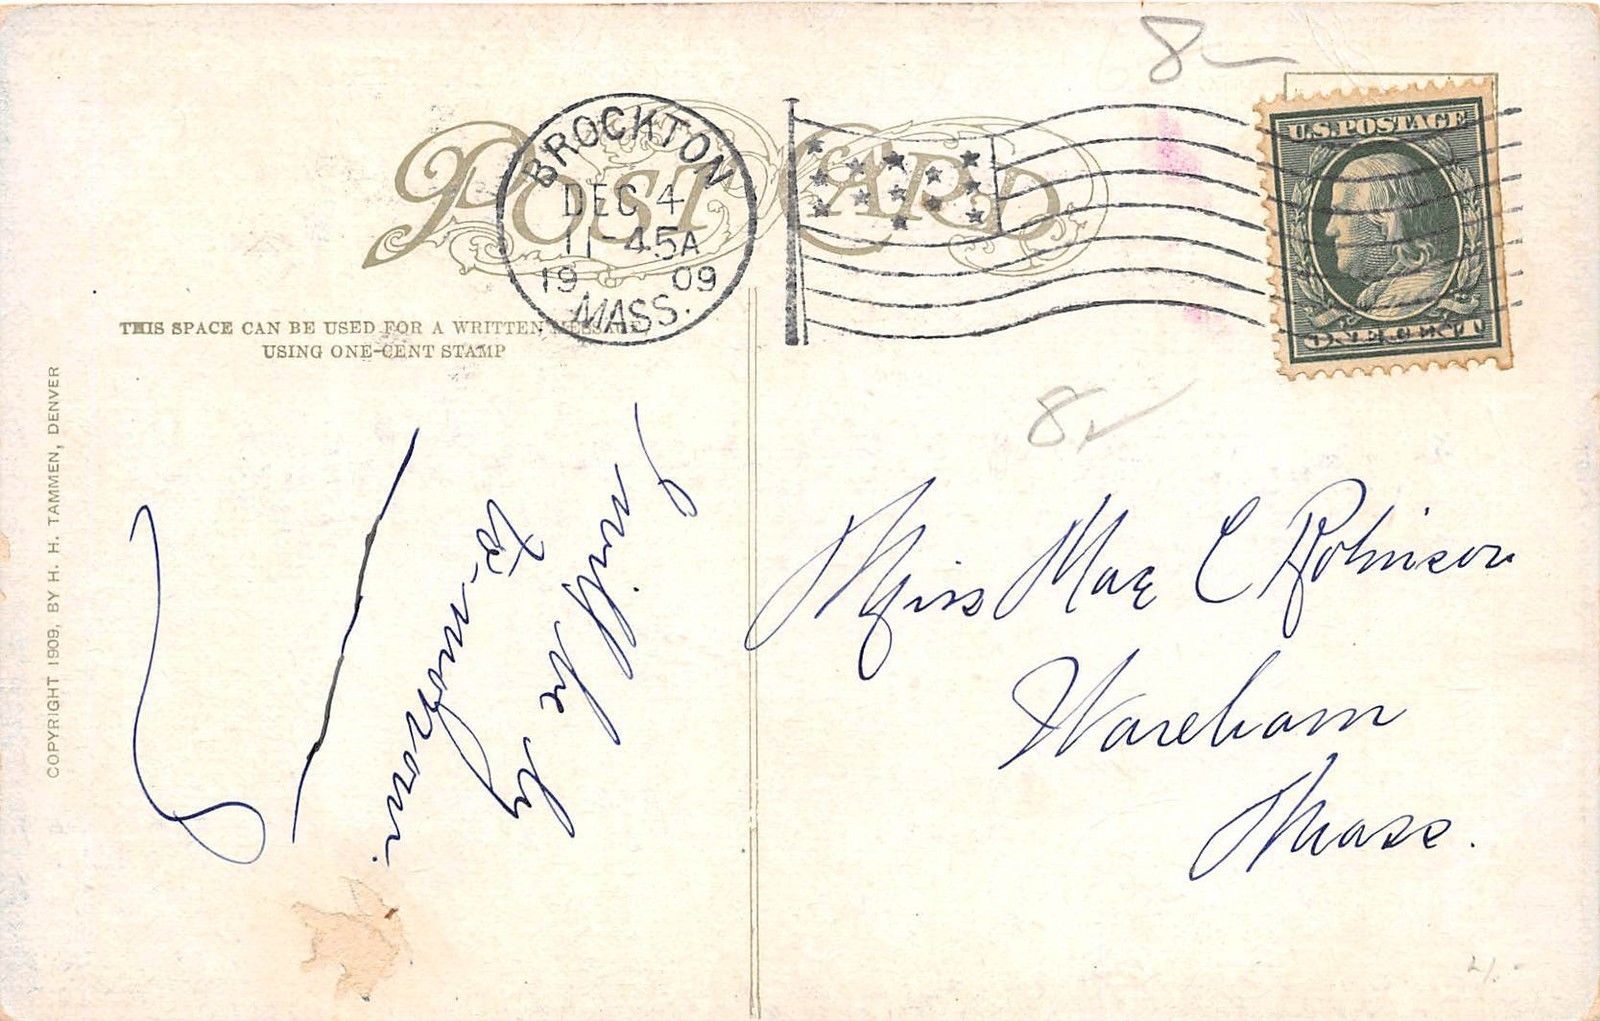 8
POST CARD
BROCKTON
DEC 4
11-45A
1909
MASS.
U.S. POSTAGE
THIS SPACE CAN BE USED FOR A WRITTEN MESSAGE
USING ONE-CENT STAMP
COPYRIGHT 1909, BY H. H. TAMMEN, DENVER
8
I
will be by
to-morrow.
Miss Mae C Robinson
Wareham
Mass.